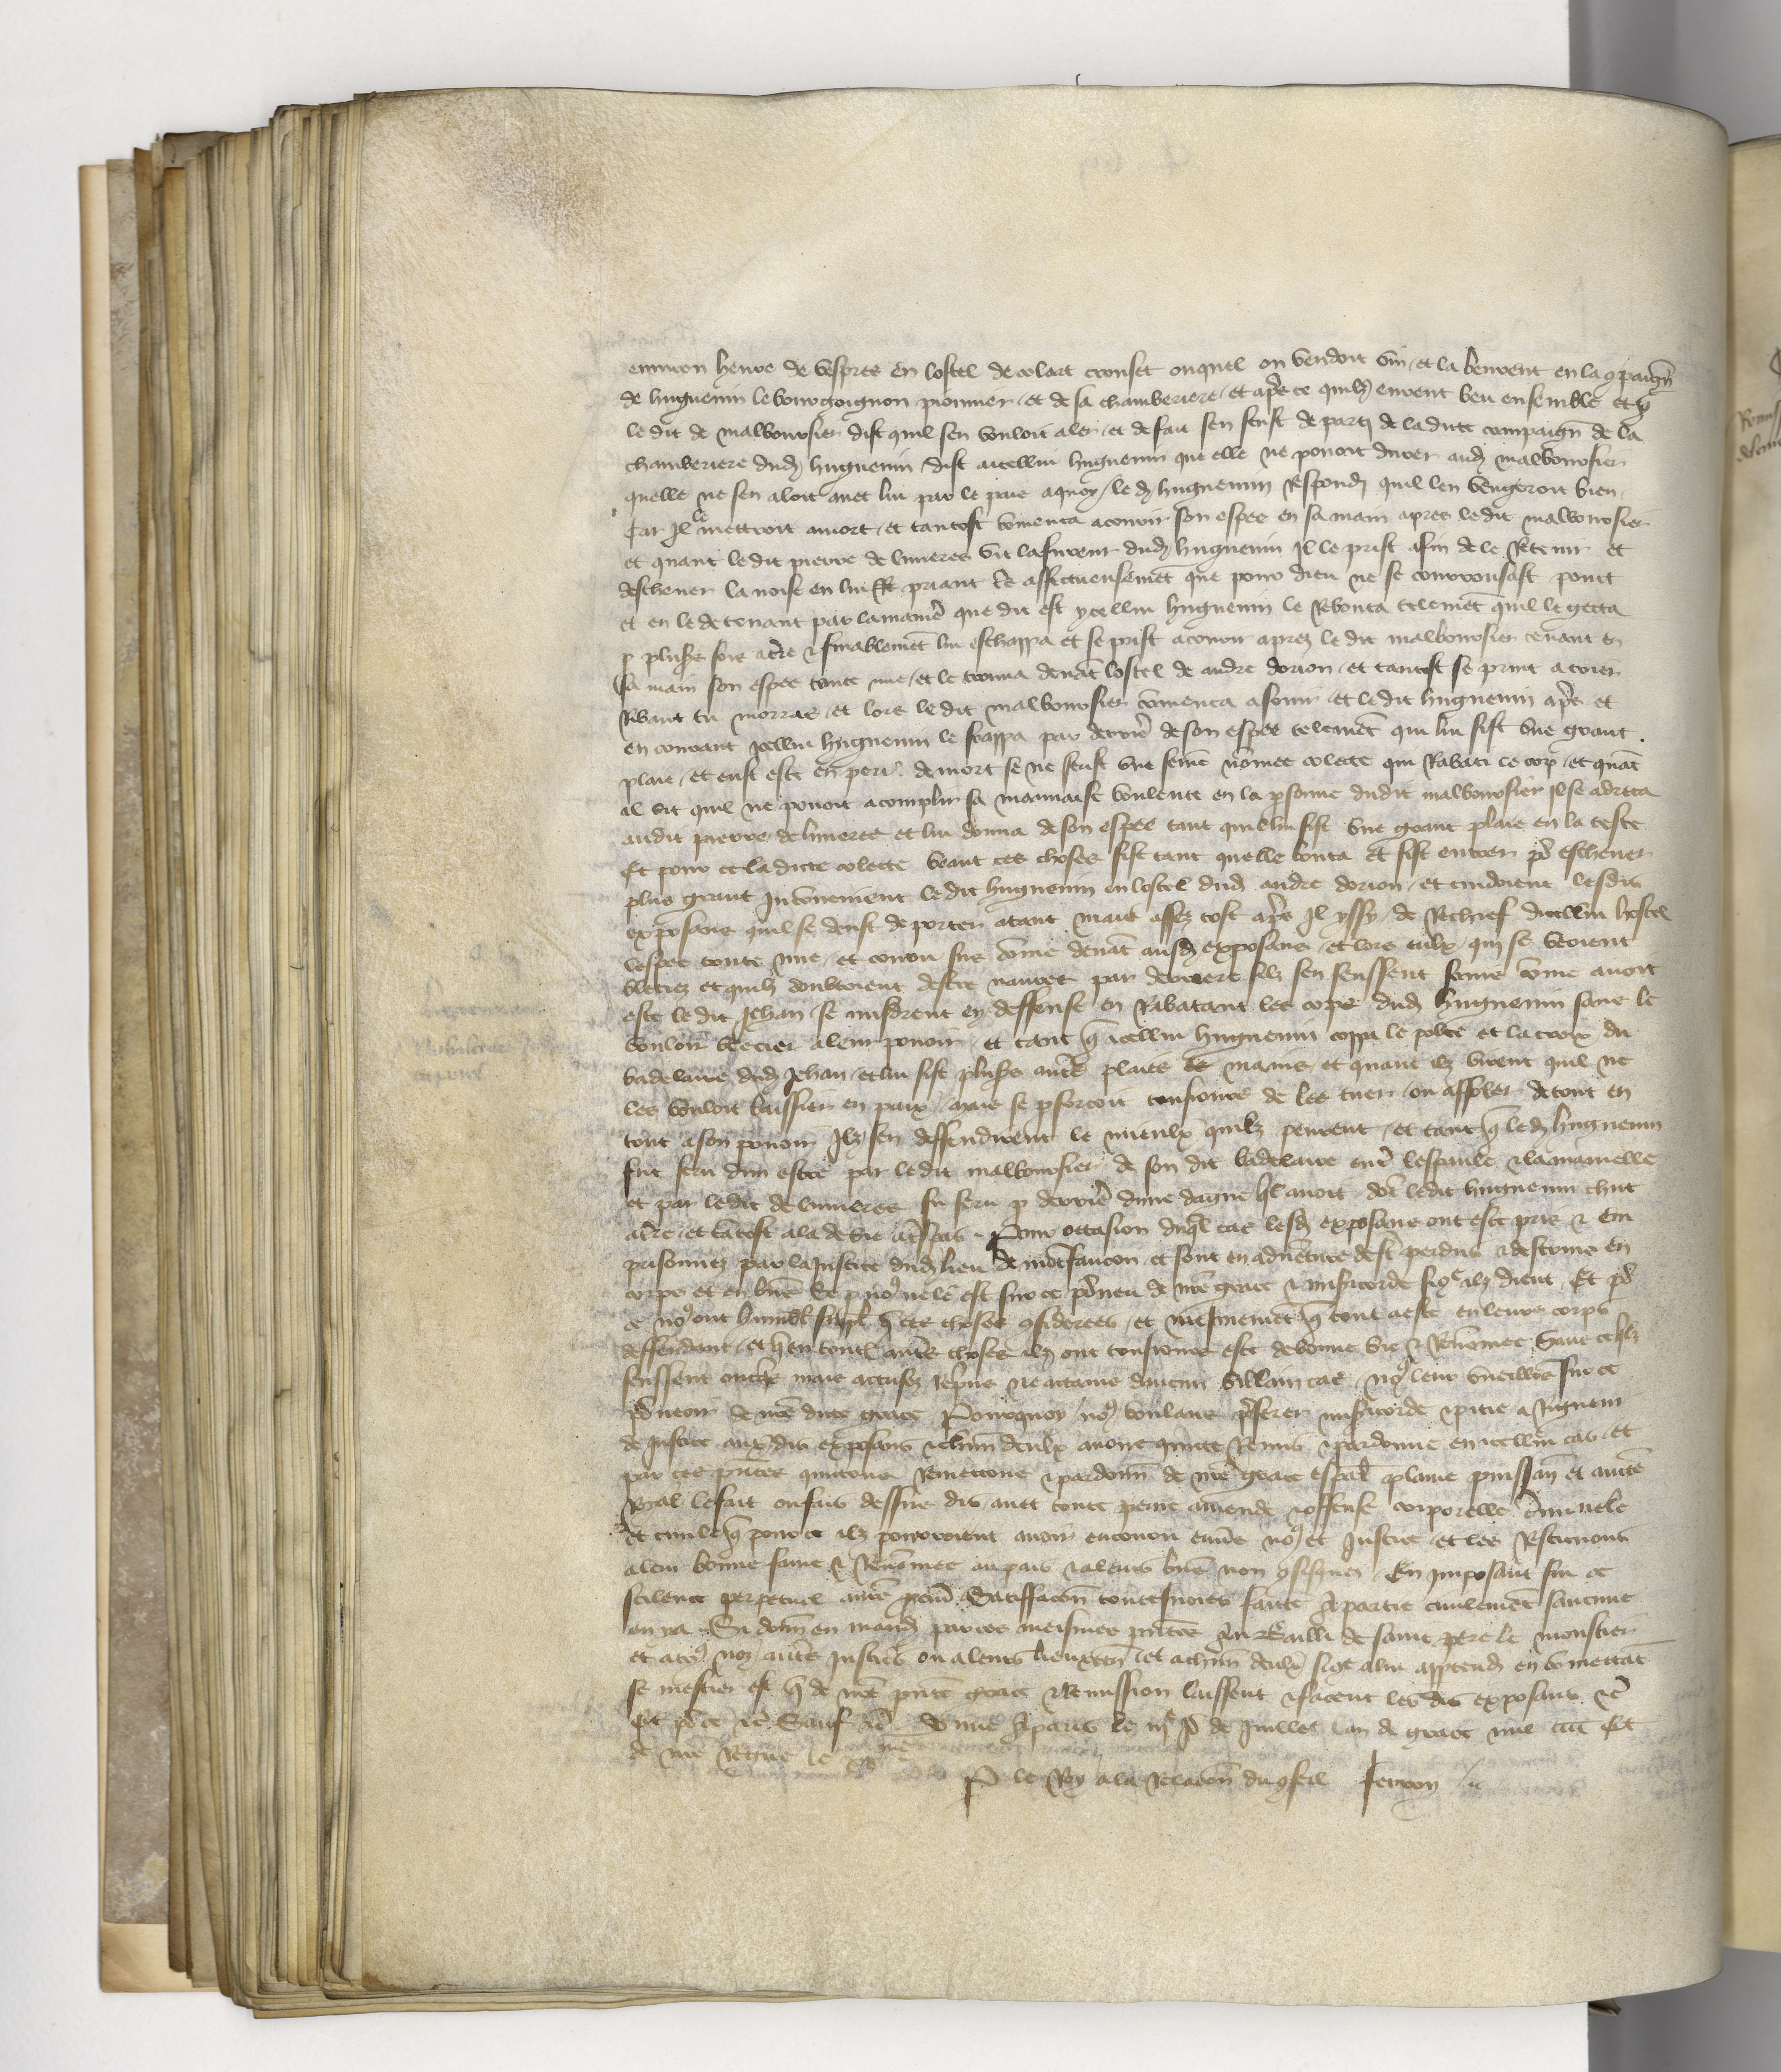 environ heure de vespres en lostel de colart crouset ouquel on vendoit vin et la beurent en la gpaign
de huguenin le bourgoignon pionnier et de sa chamberiere et apres ce quilz eurent beu ensemble et q
le dit de malbouosier dist quil sen vouloit aler et de fait sen feust de parti de la dicte compaign de la
chamberiere dud huguenin dist a icellui huguenin que elle ne pouoit durer aud malbouosier
quelle ne sen aloit avec lui par le paie a quoy le d huguenin respondi quil len vengeroit bien
Car il le mettroit a mort et tantost comenca a courir son espee en sa main apres le dit malbouosier
et quant le dit pierre de lumeres vit la fureur dud huguenin Il le prist afin de le retenir et
deschever la noise en lui priant tres affectueusemet que pour dieu ne se courrousast point
et en le detenant par la maniere que dit est ycellui huguenin le rebouta telemet quil le getta
p plusrs fois a tre & finablemet lui eschappa et se prist a courir apres le dit malbouosier tenant en
sa main son espee toute nue et le trouva devat lostel de andre dorion et tantost se print a crier
Ribaut tu morras et lors le dit malbouosier comenca a fouir et le dit huguenin apres et
en courant Icellui huguenin le frappa par derrier de son espee telemet qui lui fist une grant
plaie et eust este en peril de mort se ne feust une feme nomee colecte qui rabati le cop et quat
il vit quil ne pouoit acomplir sa mauvaise voulente en la psonne dudit malbouosier Il se adreca
audit pierre de lumeres et lui donna de son espee tant quil lui fist une grant plaie en la teste
Et pour ce la dicte colecte veant ces choses fist tant quelle bouta et fist entrer pr eschever
plus grant Inconvenient le dit huguenin en lostel dud andre dorion et cuidoient lesdis
exposans quil se deust deporter atant mais assez tost apres Il yssy de rechief dicellui hostel
lespee toute nue et couru sus come devat ausd exposans et lors eulx qui se veoient
bleciez et quilz doubtoient destre navrez par derriere silz sen feussent fouis come avoit
este le dit Jehan se misdrent en deffense en rabatant les cops dud huguenin sans le
vouloir blecier a leur pouoir et tant q icellui huguenin coppa le polce et la croix du
badelaire dud Jehan et lui fist plusrs autres plaies es mains et quant ilz virent quil ne
les vouloit laissier en paix mais se pforcoit tousiours de les tuer ou affoler de tout en
tout a son pouoir Ilz sen deffendirent le mieulx quilz peurent et tant q led huguenin
fut feru dun estoc par le dit malbouosier de son dit badelaire entre lespaule & la mamelle
et par le dit de lumeres fu feru p derriere dune dague ql avoit dot le dit huguenin chut
a tre et tatost ala de vie a trespas Pour occasion duql cas lesd exposans ont este pris & em
prisonnez par la justice dud lieu de motfaucon et sont en adveture destre perdus & destruis en
corps et en biens se p nous ne le est sur ce pourveu de nre grace & misericorde sicoe ilz dient Et pr
ce nous ont humblt suppl q ces choses gsiderees et mesmemet q tout a este en leurs corps
deffendant et q en toutes autres choses ilz ont tousiours este de bonne vie & renomee sans ce quilz
feussent onques mais accusez repris ne attains daucun villain cas nous leur vueillons sur ce
pourveoir de nre dicte grace Pourquoy nous voulans preferer misericorde & pitie a rigueur
de justice aux dis exposans & chun deulx avons quicte remis & pardonne en icellui cas et
par ces pntes quictons remettons & pardonn de nre grace espal plaine puissan et aucte
Royal le fait ou fais dessus dis avec toute peine amende & offense corporelle criminele
et civile q pour ce ilz pourroient avoir encouru envers nous et Justice et les restituons
a leur bonne fame & renomee au pais & a leurs biens non gfisquez En imposant sur ce
scilence perpetuel a nre procur Satisfacon toutesvoies faicte a partie civilement saucune
en ya Si donn en mand par ces mesmes pntes au Bailli de saint pere le monstier
et a tous noz autres justiciers ou a leurs lieuxten et a chun deulx sicoe a lui apptend en comettat
se mestier est q de nre pnte grace & remission laissent & facent les dis exposans &c
Et pr ce &c Sauf &c Donne a paris le iiie Jr de Juillet lan de grace mil cccc et
de nre regne le xxme
P le Roy a la relacion du gseil Ferron